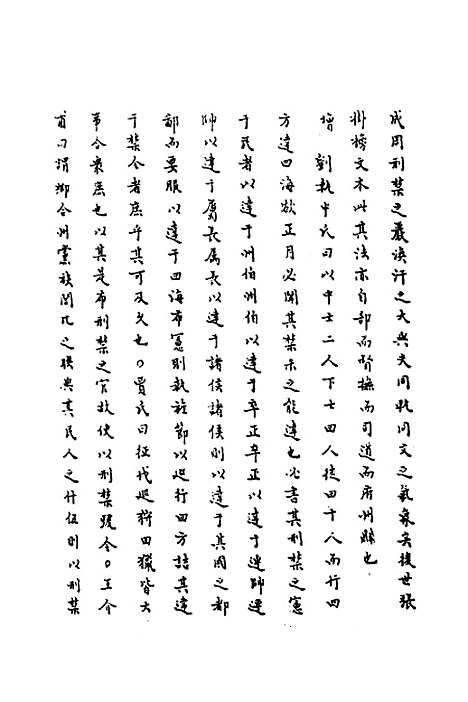 成周刑禁之嚴渙汗之大與文同軌同文之氣象矣後世張
掛榜文本此其法亦自部而督撫而司道而府州縣也
增 劉執中氏曰以中士二人下士四人徒四十人而行四
方達四海欲正月必聞其禁未之能達也必書其刑禁之憲
于民者以達于州伯州伯以達于卒正卒正以達于連帥連
帥以達于屬長屬長以達于諸侯諸侯則以達于其國之都
鄙而要服以達于四海布憲則執旌節以巡行四方詰其違
于禁令者庶乎其可及久也○賈氏曰征伐巡狩田獵皆大
事合衆庶也以其是布刑禁之官故使以刑禁號令○王介
甫曰謂鄉合州黨族閭比之聯與其民人之什伍則以刑禁